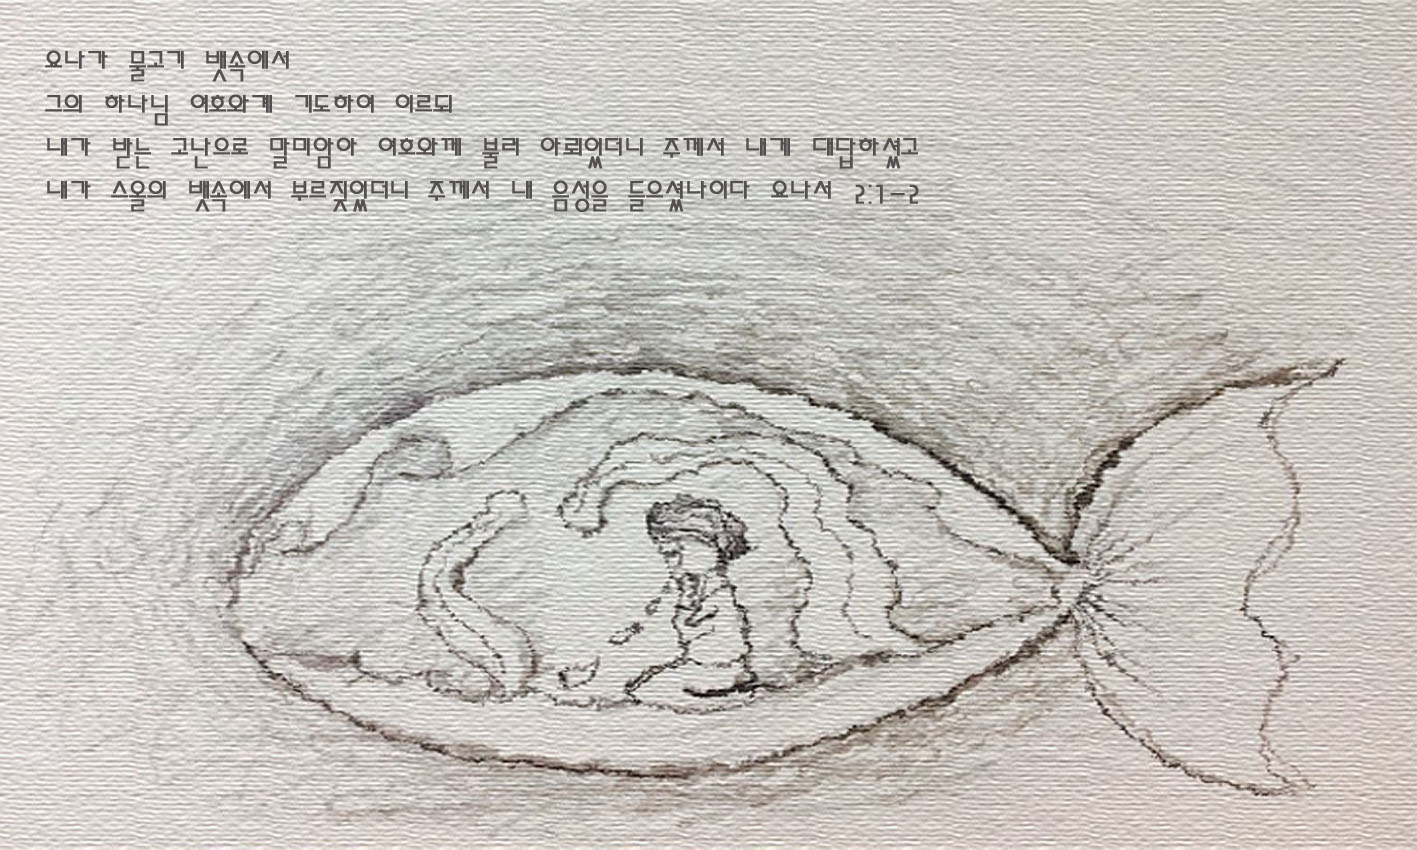 요나가 물고기 뱃속에서
그의 하나님 여호와게 기도하여 이르되
내가 받는 고난으로 말미암아 여호와께 불러 아뢰었더니 주께서 내게 대답하셨고
내가 스올의 뱃속에서 부르짖었더니 주께서 내 음성을 들으셨나이다 요나서 2:1-2